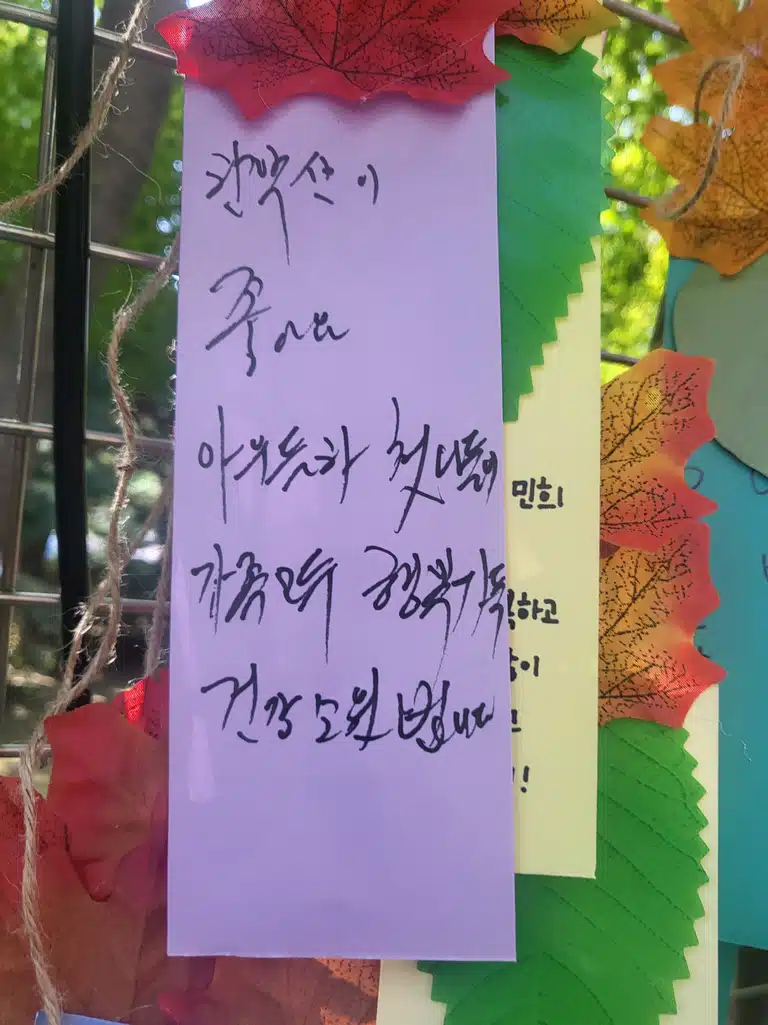 관악산이
좋아요
첫나들이
가족모두 행복가득
건강 소원 빕니다
민희
하고
이
!